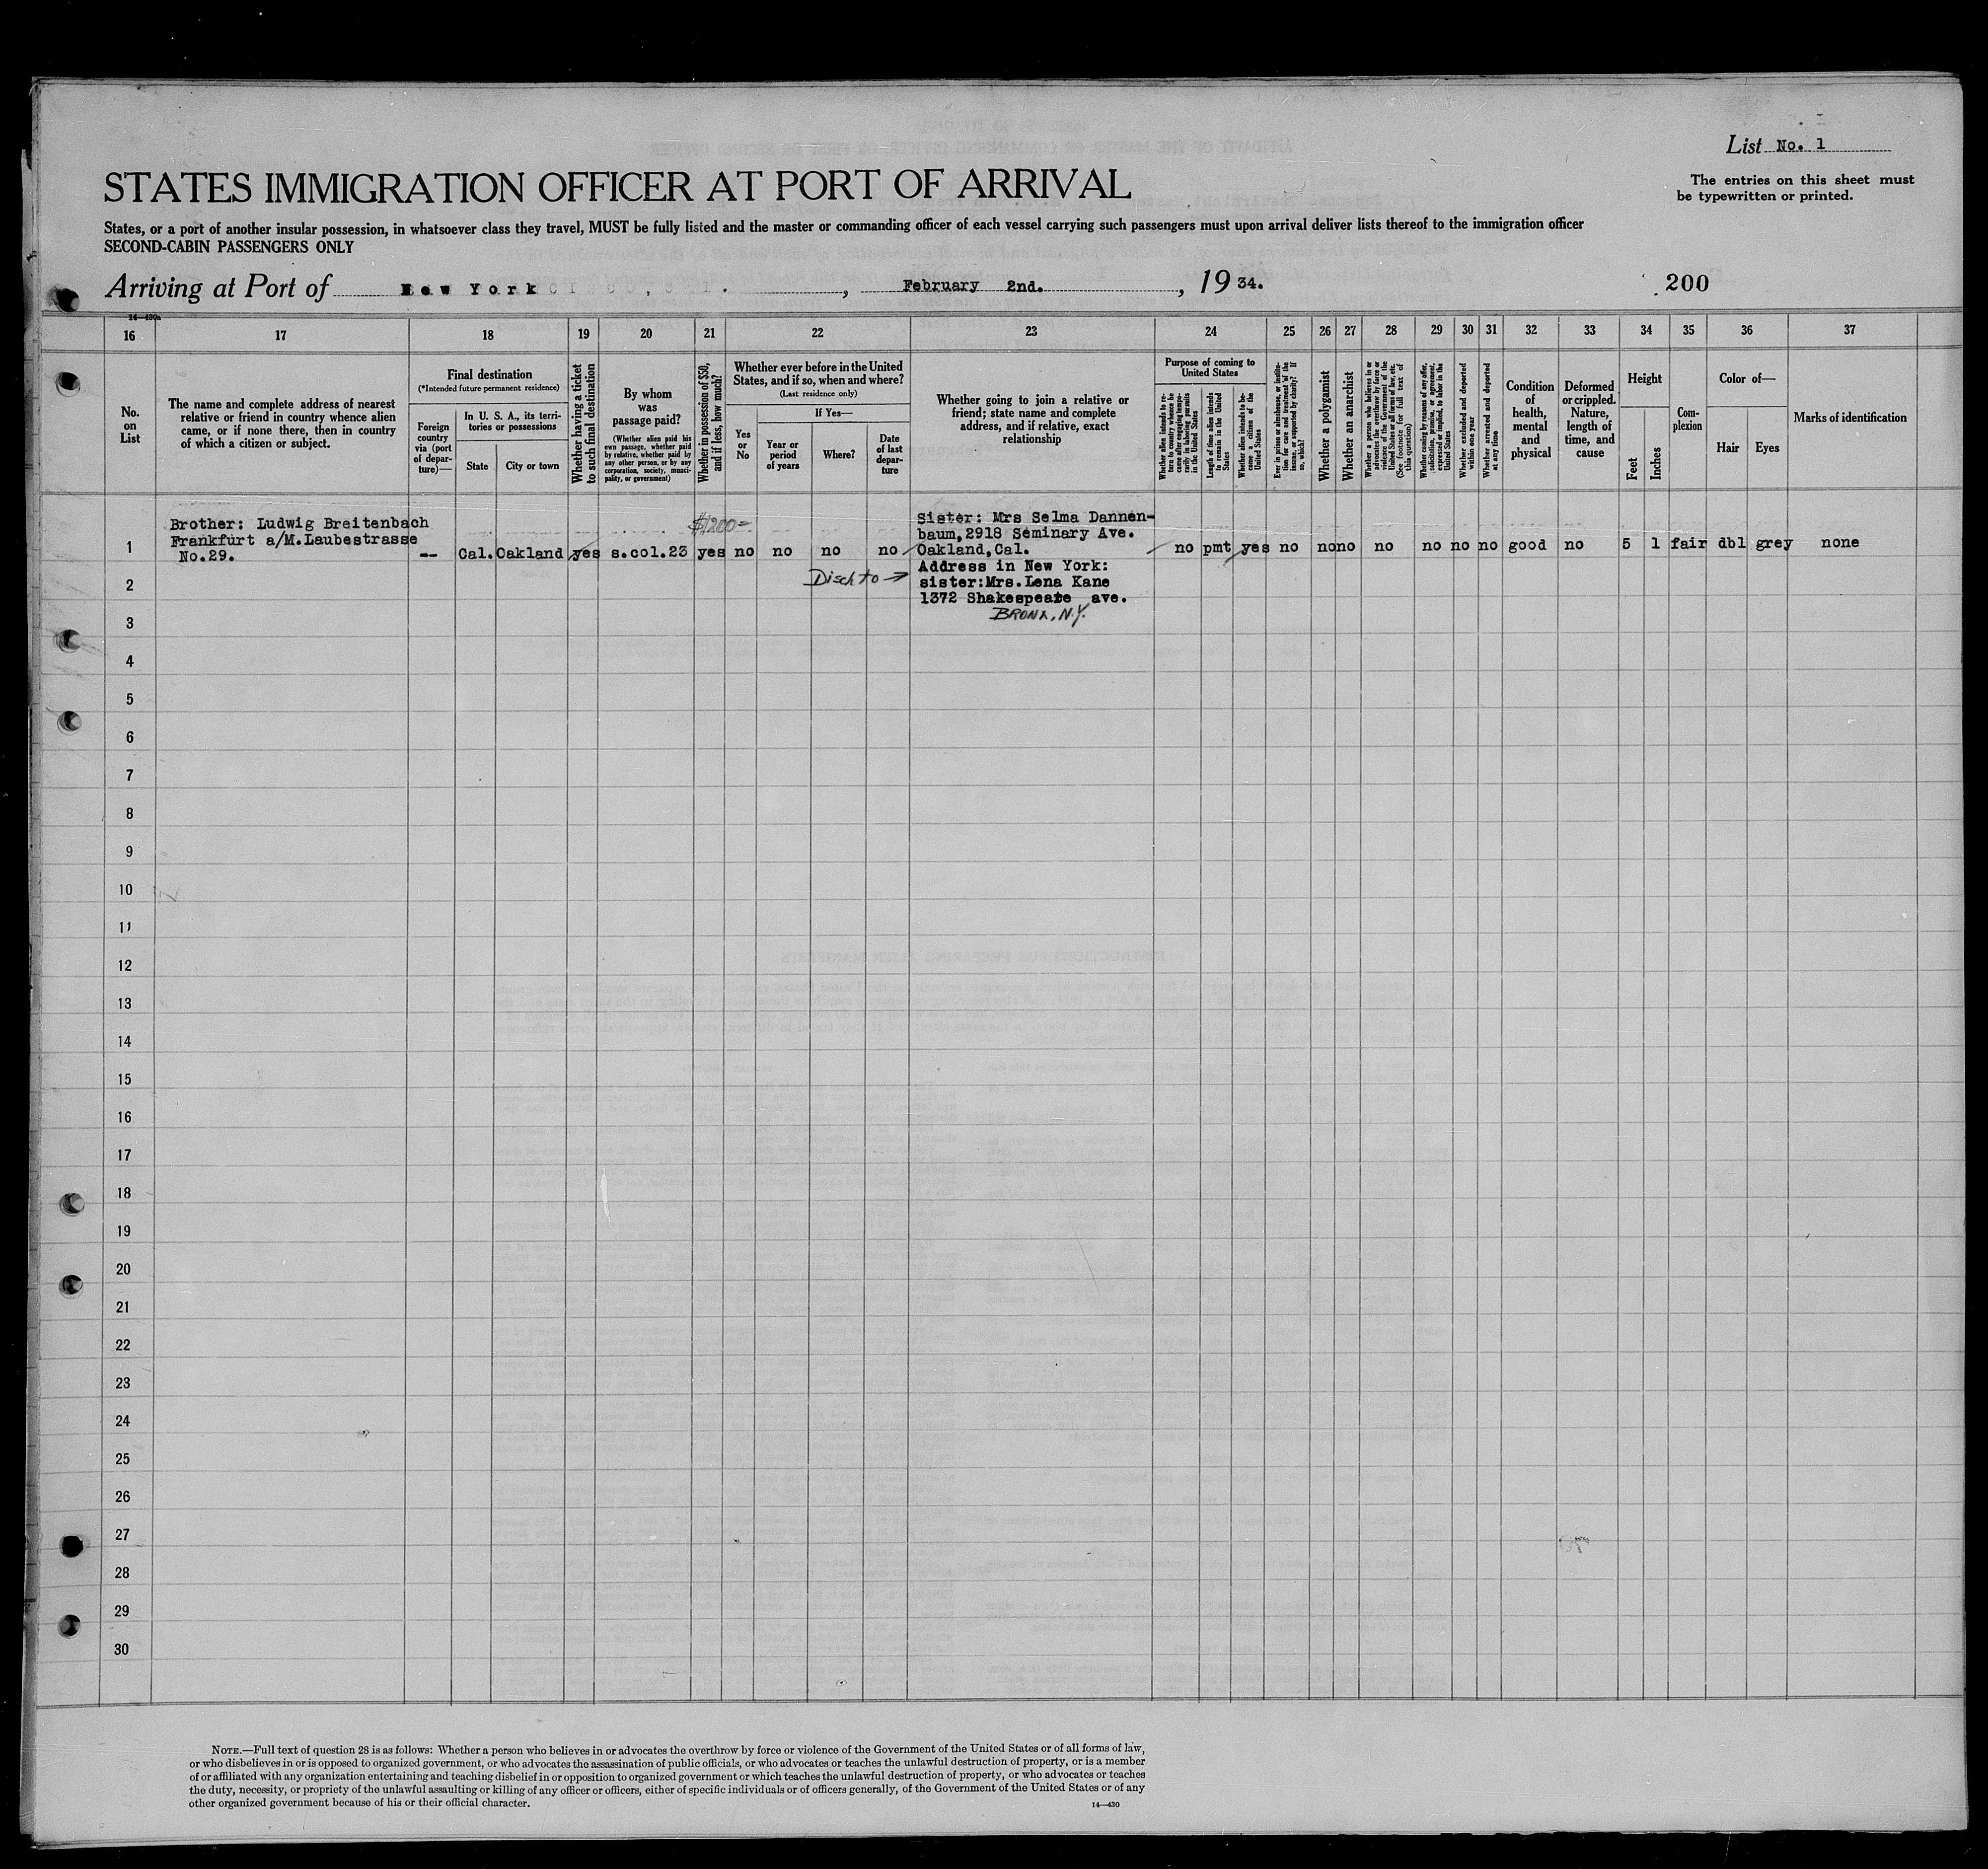 List No. 1
STATES IMMIGRATION OFFICER AT PORT OF ARRIVAL
The entries on this sheet must
be typewritten or printed.
States, or a port of another insular possession, in whatsoever class they travel, MUST be fully listed and the master or commanding officer of each vessel carrying such passengers must upon arrival deliver lists thereof to the immigration officer
SECOND-CABIN PASSENGERS ONLY
Arriving at Port of New York, February 2nd., 1934.
200
14—430a
16 17 18 19 20 21 22 23 24 25 26 27 28 29 30 31 32 33 34 35 36 37
No.
on
List
The name and complete address of nearest
relative or friend in country whence alien
came, or if none there, then in country
of which a citizen or subject.
Final destination
(*Intended future permanent residence)
Foreign
country
via (port
of depar-
ture)—
In U. S. A., its terri-
tories or possessions
State
City or town
Whether having a ticket
to such final destination
By whom
was
passage paid?
(Whether alien paid his
own passage, whether paid
by relative, whether paid by
any other person, or by any
corporation, society, munici-
pality, or government)
Whether in possession of $50,
and if less, how much?
Whether ever before in the United
States, and if so, when and where?
(Last residence only)
Yes
or
No
If Yes—
Year or
period
of years
Where?
Date
of last
depar-
ture
Whether going to join a relative or
friend; state name and complete
address, and if relative, exact
relationship
Purpose of coming to
United States
Whether alien intends to re-
turn to country whence he
came after engaging tempo-
rarily in laboring pursuits
in the United States
Length of time alien intends
to remain in the United
States
Whether alien intends to be-
come a citizen of the
United States
Ever in prison or almshouse, or institu-
tion for care and treatment of the
insane, or supported by charity? If
so, which?
Whether a polygamist
Whether an anarchist
Whether a person who believes in or
advocates the overthrow by force or
violence of the Government of the
United States or all forms of law, etc.
(See footnote for full text of
this question)
Whether coming by reasons of any offer,
solicitation, promise, or agreement,
expressed or implied, to labor in the
United States
Whether excluded and deported
within one year
Whether arrested and deported
at any time
Condition
of
health,
mental
and
physical
Deformed
or crippled.
Nature,
length of
time, and
cause
Height
Feet
Inches
Com-
plexion
Color of—
Hair
Eyes
Marks of identification
1
Brother: Ludwig Breitenbach
Frankfurt a/M.Laubestrasse
No.29.
--
Cal.
Oakland
yes
s.col.23
$1200=
yes
no
no
no
no
Sister: Mrs Selma Dannen-
baum,2918 Seminary Ave.
Oakland,Cal.
Disch to →
Address in New York:
sister:Mrs.Lena Kane
1372 Shakespeare ave.
BRONX, N.Y.
no pmt yes no no no no no no no good no 5 1 fair dbl grey none
2
3
4
5
6
7
8
9
10
11
12
13
14
15
16
17
18
19
20
21
22
23
24
25
26
27
28
29
30
NOTE.—Full text of question 28 is as follows: Whether a person who believes in or advocates the overthrow by force or violence of the Government of the United States or of all forms of law,
or who disbelieves in or is opposed to organized government, or who advocates the assassination of public officials, or who advocates or teaches the unlawful destruction of property, or is a member
of or affiliated with any organization entertaining and teaching disbelief in or opposition to organized government or which teaches the unlawful destruction of property, or who advocates or teaches
the duty, necessity, or propriety of the unlawful assaulting or killing of any officer or officers, either of specific individuals or of officers generally, of the Government of the United States or of any
other organized government because of his or their official character.
14—430